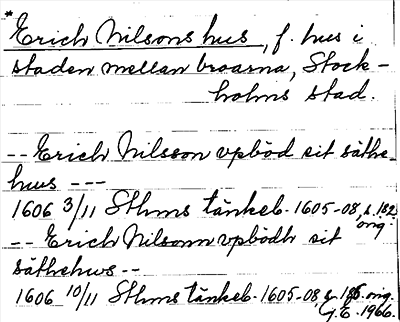 * Erich Nilsons hus, f. hus i
staden mellan broarna, Stock-
holms stad.
-- Erich Nilsson vpböd sit säthe-
hws ---
1606 3/11 Sthms tänkeb. 1605-08, s. 182
orig.
-- Erich Nilsonn vpbödh sit
säthehws --
1606 10/11 Sthms tänkeb. 1605-08 s. 185 orig.
G.E. 1966.